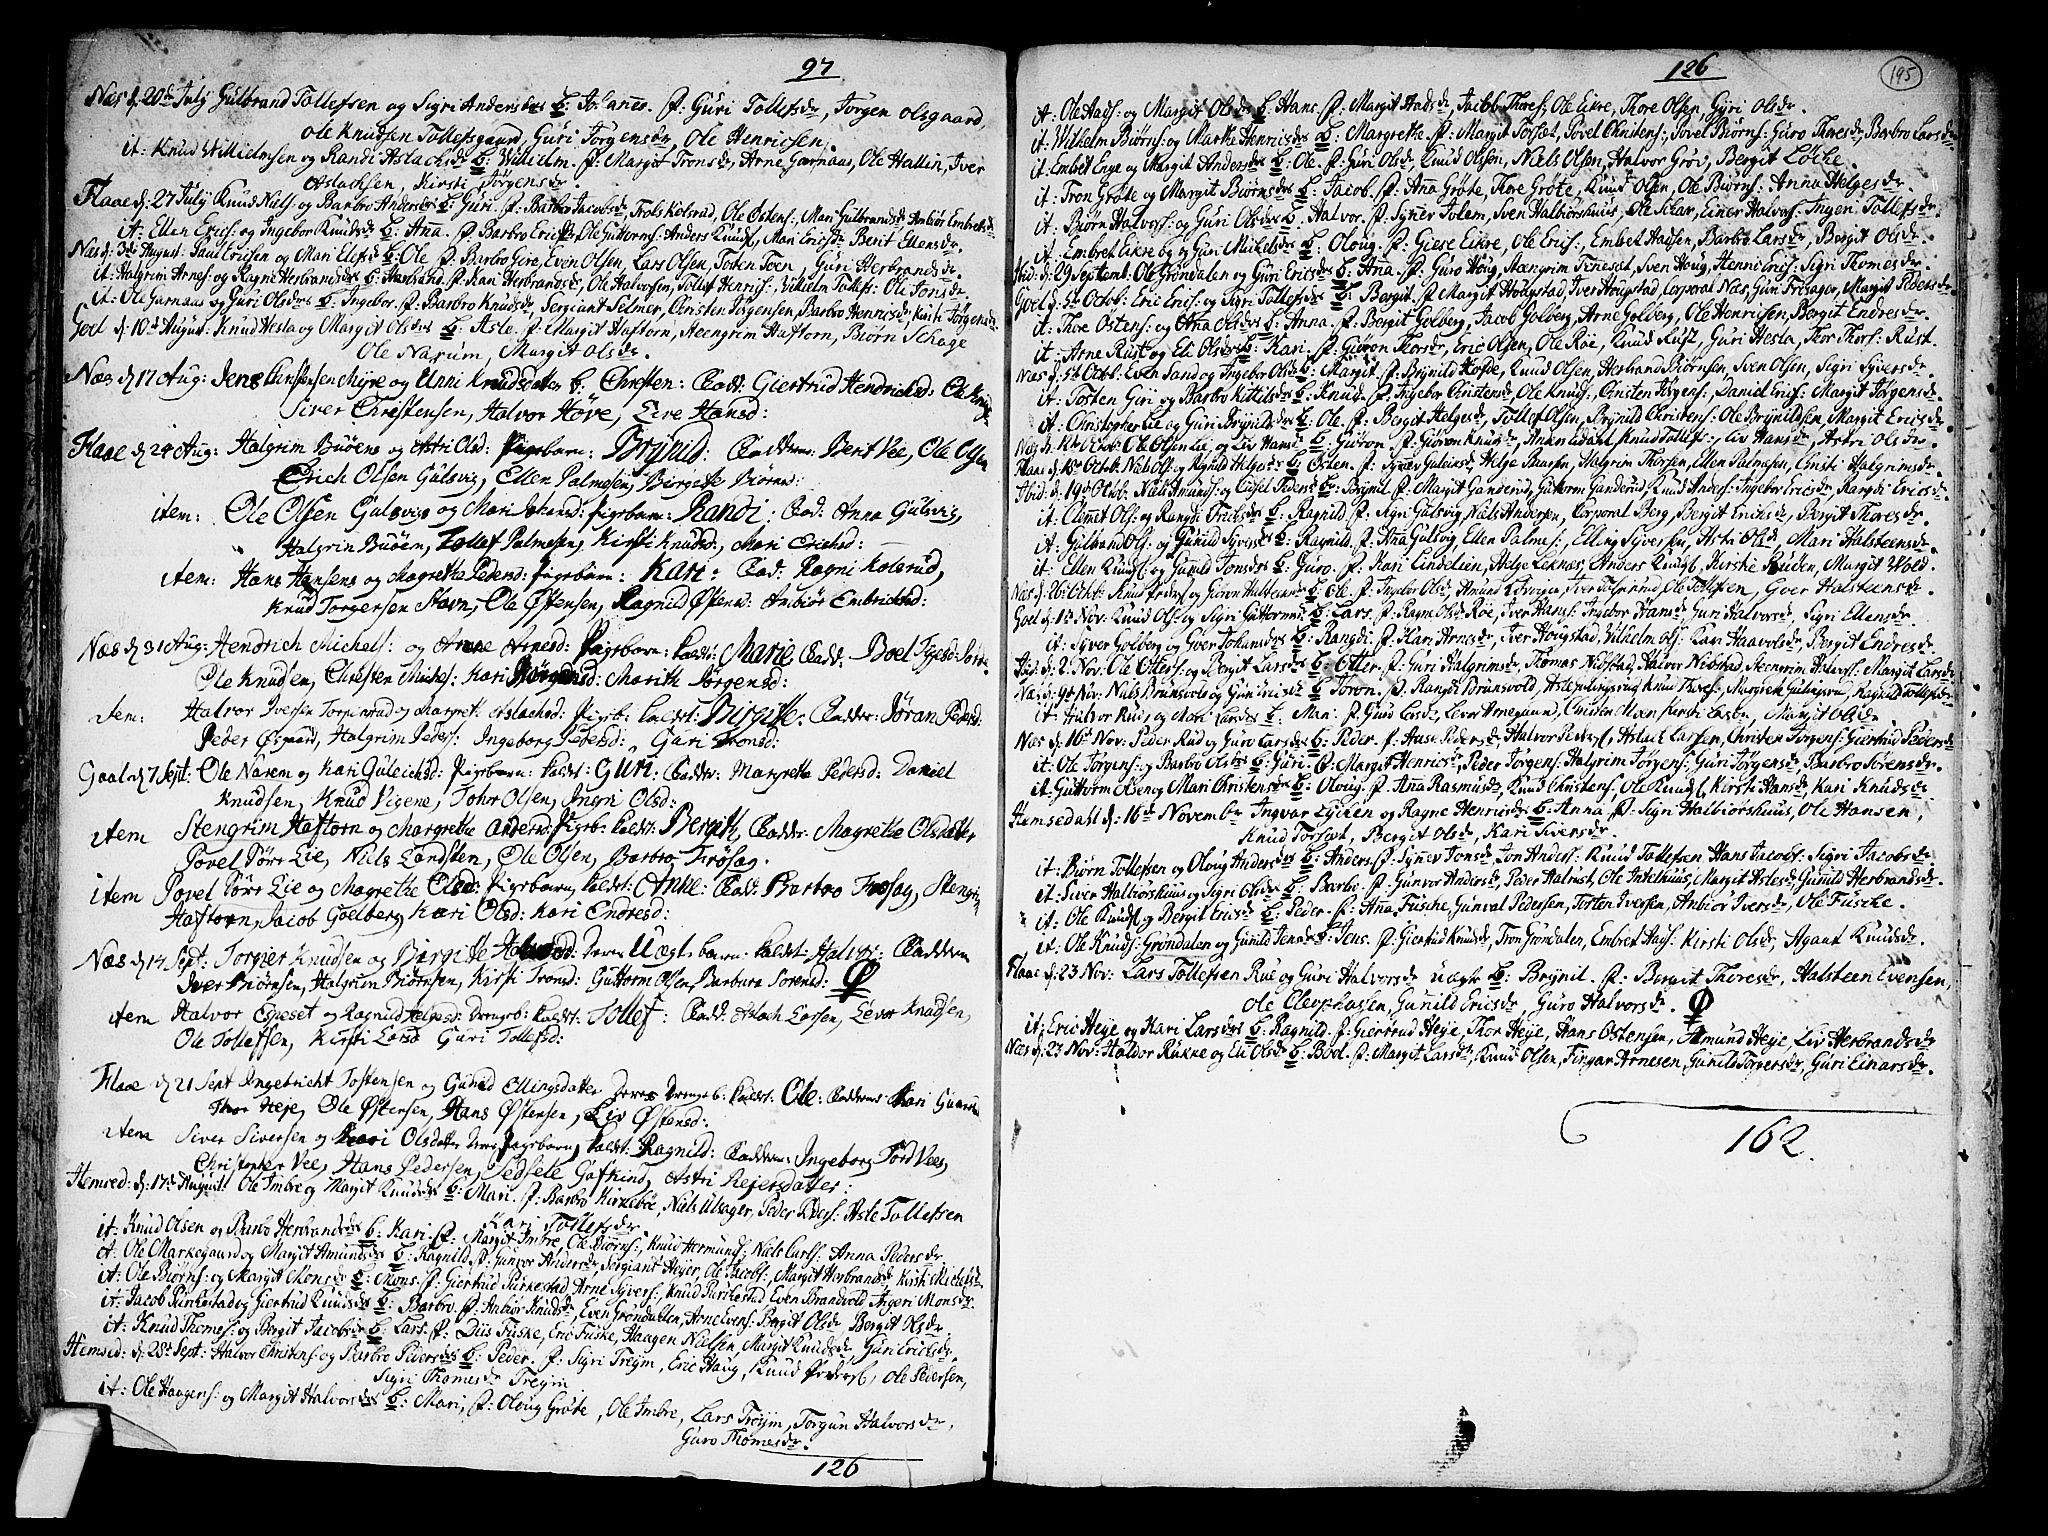 97
Næs d. 20de July Gulbrand Tollefsen og Sigri Andersdr b: Johanes. f: Guri Tollefsdr, Jørgen Olsgaard,
Ole Knudsen Tollefsgaard, Guri Jørgensdr, Ole Henricsen,
it: Knud Willielmsen og Randi Aslachsdr b: Willielm. f: Margit Tronsdr, Arne Garnaas, Ole Hallin, Iver
Aslachsen, Kirsti Jørgensdr.
Flaae d: 27 July Knud Niels: og Barbro Andersdr b: Guri. f: Barbro Jacobsdr, Trols Kolsrud, Ole Østens:, Mari Gulbrandsdr, Anbiør Embretsdr
it: Ellen Erics: og Ingebor Knudsdr b: Ana. f: Barbro Ericsdr, Ole Guttorms: Anders Knuds: Mari Ericsdr Berit Ellensdr.
Næs d: 3de August Paul Ericsen og Mari Elefsdr b: Ole f: Barbro Gire, Even Olsen, Lars Olsen, Torten Toen, Guri Herbrandsdr.
it: Halgrim Arnes: og Ragne Herbrandsdr b: Herbrand. f: Kari Herbrandsdr, Ole Halvorsen, Tollef Henrics: Wilhelm Tollefs: Ole Jonsdr
it: Ole Garnaas og Guri Olsdr b: Ingebor. f: Barbro Knudsdr, Sergiant Silmer, Christen Jørgensen, Barbro Henricsdr, Kirsti Jørgensdr
Gol d: 10de August: Knud Hesla og Margit Olsdr b: Asle. f: Margit Haftorn, Steengrim Haftorn, Biørn Schage
Ole Narum, Margit Olsdr.
Næs d 17 Aug: Jens Christensen Myre og Unni Knudsdatter b: Christen: Fadd: Giertrud Hendrichsd: Ole
Siver Christensen, Halvor Høve, Live Hansd:
Flaae d 24 Aug: Halgrim Buøens og Astri Olsd: Pigebarn: Brynild: Faddere: Berit Vee, Ole Olsen
Erich Olsen Gulsvig, Ellen Palmesen, Birgitte Biørnsd:
item: Ole Olsen Gulsvigs og Mari Johansd: Pigebarn: Randi: Fad: Anna Gulsvig,
Halgrim Buøen, Tollef Palmesen, Kirsti Knudsd:, Mari Erichsd:
item: Hans Hansens og Magrethe Pedersd: Pigebarn: Kari: Fad: Ragni Kolsrud,
Knud Torgersen Stavn, Ole Østensen, Ragnild Østensd: Anbiør Embrichsd:
Næs d 31 Aug: Hendrich Michels: og Anne Arnesd: Pigebarn: kaldt: Marie, Fadd: Boel
Ole Knudsen, Christen Michels: Kari Jørgensd: Marith Jørgensd:
item: Halvor Iversen Torpenrud og Margreth Aslachsd: Pigeb: kaldt: Birgitte: Fadder: Jøran Pedersd:
Peder Olsgaard, Halgrim Peders: Ingeborg Pedersd: Guri Tronsd:
Gaal d 7 Sept: Ole Narem og Kari Guleichsd: Pigebarn: kaldet: Guri: Fadder: Margrethe Pedersd: Daniel
Knudsen, Knud Vigene, Tohr Olsen, Ingri Olsd:
item Stengrim Haftorn og Margrethe Andersd: Pigeb: kaldt: Bergith, Fadder: Magrethe Olsdatter
Povel Sørr Lie, Niels Landsten, Ole Olsen, Barbro Frøsag.
item Povel Sørr Lie og Magrethe Olsd: Pigebarn, kaldt: Anne: Fad: Barbro Frøsag, Stengrim
Haftorn, Jacob Goelberg, Kari Olsd: Kari Endresd:
Næs d 14 Sept: Torgier Knudsen og Birgitte Halvorsd: deres Uægt. barn: kaldt: Halvor: Fadderne
Iver Biørnsen, Halgrim Biørnsen, Kirsti Tronsd: Guttorm Olsen, Barbara Sørensd:
item Halvor Espeset og Ragnild Helgesd: Drengeb: kaldt: Tollef: Fadd: Aslach Larsen, Lever Knudsen,
Ole Tollefsen, Kirsti Larsd Guri Tollefsd:
Flaae d 21 Sept Ingebricht Tostensen og Gunild Ellingsdatter deres Drengeb: kaldt: Ole: Fadderne Kari
Thor Heje, Ole Østensen, Hans Østensen, Liv Østensd:
item Siver Siversen og Kari Olsdatter deres Pigebarn, kaldt: Ragnild: Fadderne: Ingeborg Tord Vees,
Christopher Vee, Hans Pedersen, Sedsele Gafkind, Astri Rejersdatter:
Hemsed: d: 17de August: Ole Imbre og Margit Knudsdr b: Mari. f: Barbro Kirkeboe, Niels Ulsager, Peder Peders: Asle Tollefsen
Kari Tollefsdr
it: Knud Olsen og Barbo Herbrandsdr b: Kari. f: Margit Imbre, Ole Biørns:, Knud Hermunds: Niels Carls: Anna Pedersdr.
it: Ole Markegaard og Margit Amundsdr b: Ragnild. f: Gunvor Andersdr, Sergiant Heyer, Ole Jacobs:, Margit Herbrandsdr Kirsti Michelsdr
it: Ole Biørns: og Margit Monsdr b: Mons. f: Giertrud Purkestad, Arne Syvers:, Knud Purkestad Even Brandvold Ingeri Monsdr.
it: Jacob Purkestad og Giertrud Knudsdr b: Barbro. f: Anbiør Knudsdr, Even Grøndahlen, Arne Evens: Bergit Olsdr Bergit Olsdr
it: Knud Thomes: og Bergit Jacobsdr b: Lars. f: Diis Fuske, Eric Fuske, Haagen Nielsen, Margit Knudsdr, Guri Ericsdr.
Hemsed: d: 28de Sept: Halvor Christens: og Barbro Pedersdr b: Peder. f: Sigri Treym, Eric Haug, Knud Peders:, Ole Pedersen,
Sigri Thomesdr Treym
it: Ole Haagens: og Margit Halvorsdr b: Mari, f: Oloug Grøte, Ole Imbre, Lars Treym, Torgun Halvorsdr,
Guro Thomesdr.
126
126
195
it: Ole Hads: og Margit Olsdr b: Hans. f: Margit Hadsdr, Jacob Thores: Ole Eikre, Thore Olsen, Gyri Olsdr
it: Wilhelm Biørns: og Marthe Henricsdr b: Margrethe. f: Margit Torset, Povel Christens:, Povel Biørns: Guro Thoresdr, Barbro Larsdr
it: Embret Enge og Margit Andersdr b: Ole. f: Guri Olsdr, Knud Olssen, Niels Olsen, Halvor Grøv, Bergit Løcke.
it: Tron Grøte og Margit Biørnsdr b: Jacob. f: Anna Grøte, Thore Grøte, Knud Olsen, Ole Biørns: Anna Helgesdr.
it: Biørn Halvors: og Guri Olsdr b: Halvor. f: Synev Jolem, Sven Halbiørshuus, Ole Skar, Einer Halvors: Ingeri Tollefsdr.
it: Embret Eikre og Guri Mikelsdr b: Oloug. f: Giese Eikre, Ole Erics:, Embret Hansen, Barbro Larsdr, Bergit Olsdr.
Ibid: d: 29 Septembr: Ole Grøndalen og Gyri Ericsdr b: Anna. f: Guro Houg, Steengrim Finneset, Sven Houg, Henric Erics: Sigri Thomesdr.
Goel d: 5te Octob: Eric Erics: og Sigri Tollefsdr b: Bergit. f: Margit Hougstad, Iver Hougstad, Corporal Næs, Guri Frøsager, Margit Pedersdr
it: Thore Ostens: og Ana Olsdr b: Anna. f: Bergit Golberg, Jacob Golberg, Arne Golberg, Ole Henricsen, Bergit Endresdr.
it: Arne Rust og Eli Olsdr b: Kari. f: Giøron Thorsdr, Eric Olsen, Ole Roe, Knud Rust, Guri Hesla, Thor Thors: Rust.
Næs d: 5te Octob: Even Sand og Ingebor Olsdr b: Margit. f: Brynild Hoftse, Knud Olsen, Herbrand Biørnsen, Sven Olsen, Sigri Syversdr.
it: Torsten Giri og Barbro Kittilsdr b: Knud. f: Ingebor Christensdr, Ole Knuds:, Christen Jørgens:, Daniel Erics: Margit Jørgensdr.
it: Christopher Lie og Guri Brynildsdr b: Ole. f: Bergit Helgesdr, Tollef Olsen, Brynild Christens: Ole Brynildsen, Margit Ericsdr.
Næs d: 12te Octob: Ole Olsen Lie og Liv Hansdr b: Giøron. f: Giøron Knudsdr, Knud Tollefs:, Liv Hansdr, Astri Olsdr.
Flaae d: 15de Octob: Niels Ols: og Ragnild Helgesdr b: Osten. f: Synev Guleicsdr, Helge Baarsen, Halgrim Thorsen, Ellen Palmesen, Christi Halgrimsdr.
Ibid: d: 19de Octob: Niels Amunds: og Cissel Pedersdr b: Brynil. f: Margit Ganderud, Guttorm Ganderud, Knud Anders: Ingebor Ericsdr, Rangdi Ericsdr.
it: Clemet Ols: og Rangdi Ericsdr b: Ragnild. f: Sigri Gulsvig, Niels Andersen, Corporal Berg, Bergit Ericksdr, Bergit Thoresdr.
it: Gulbrand Ols: og Gunild Syversdr b: Ragnild. f: Ana Gulsvig, Ellen Palmes:, Elling Syversen, Astri Olsdr, Mari Halsteensdr.
it: Ellen Knuds: og Gunild Jonsdr b: Guro. f: Kari Lindelien, Helge Leknes, Anders Knuds:, Kirsti Ruden, Margit Wold.
Næs d: 26 Octob: Knud Peders: og Giøron Halstensdr b: Ole. f: Ingebor Olsdr, Amund Ole Tollefsen, Gver Halsteensdr.
Goel d: 1de Nov: Knud Ols: og Sigri Guttormsdr b: Lars. f: Ragne Olsdr Roe, Iver Hans: Ingebor Hansdr, Guri Halvorsdr, Sigri Ellensdr.
it: Syver Golberg og Gver Johansdr b: Rangdi. f: Kari Arnesdr, Iver Hougstad, Vilhelm Ols: Kari Haavolsdr, Bergit Endresdr.
Ibid: d: 2. Nov: Ole Otters: og Bergit Larsdr b: Otter. f: Guri Halgrimsdr, Thomas Nibstad, Halvor Nibstad, Steengrim Halvors: Margit Larsdr
Næs d: 9de Nov: Niels Brunsvold og Guri b: Toron. f: Rangdi Brunsvold, Knud Thores:
it: Halvor Rud og Mari Larsdr b: Mari. f: Margit Olsdr.
Næs d: 16de Nov: Peder Rud og Guro Larsdr b: Peder. f: Aase Pedersdr, Halvor Peders:, Aslac Larsen, Christen Jørgens: Giertrud Pedersdr
it: Ole Jørgens: og Barbo Olsdr b: Guri. f: Margit Henricsdr, Peder Jørgens: Halgrim Jørgens: Guri Jørgensdr Barbro Sørensdr.
it: Guttorm Olsen og Mari Christensdr b: Oloug. f: Anna Rasmusdr, Knud Christens: Ole Knuds:, Kirsti Hansdr, Kari Knudsdr
Hemsedahl d: 16de Novembr Ingvar Eycken og Ragne Henricsdr b: Anna. f: Sigri Halbiorshuus, Ole Hansen,
Knud Torset, Bergit Olsdr, Kari Siversdr.
it: Biørn Tollefsen og Oloug Andersdr b: Anders. f: Synev Jonsdr, Jon Anders: Knud Tollefsen Hans Jacobs: Sigri Jacobsdr
it: Siver Halbiorshuus og Sigri Olsdr b: Barbo. f: Gunvor Andersdr, Peder Halrust, Ole Intelhuus, Margit Aslesdr Gunild Herbrandsdr.
it: Ole Knuds: og Bergit Ericsdr b: Peder. f: Ana Fusche, Gunval Pedersen, Torsten Iversen, Anbiør Iversdr, Ole Fusche.
it: Ole Knuds: Grøndalen og Gunild Jensdr b: Jens. f: Giertrud Knudsdr, Tron Grøndalen, Embret Hacs: Kirsti Olsdr, Agaat Knudsdr.
Flaae d: 23 Nov: Lars Tollefsen Rue og Guri Halvorsdr uægte b: Brynil. f: Bergit Thoresdr, Halsteen Evensen,
Ole Cleophasen, Gunild Ericsdr Guro Halvorsdr.
it: Eric Heye og Kari Larsdr b: Ragnild. f: Giertrud Heye, Thor Heye, Hans Ostensen, Amund Heye Liv Herbrandsdr
Næs d: 23 Nov: Haldor Rukke og Eli Olsdr b: Boel. f: Margit Larsdr, Knud Olsen, Fingar Arnesen, Gunild Torgersdr, Guri Einarsdr.
162.